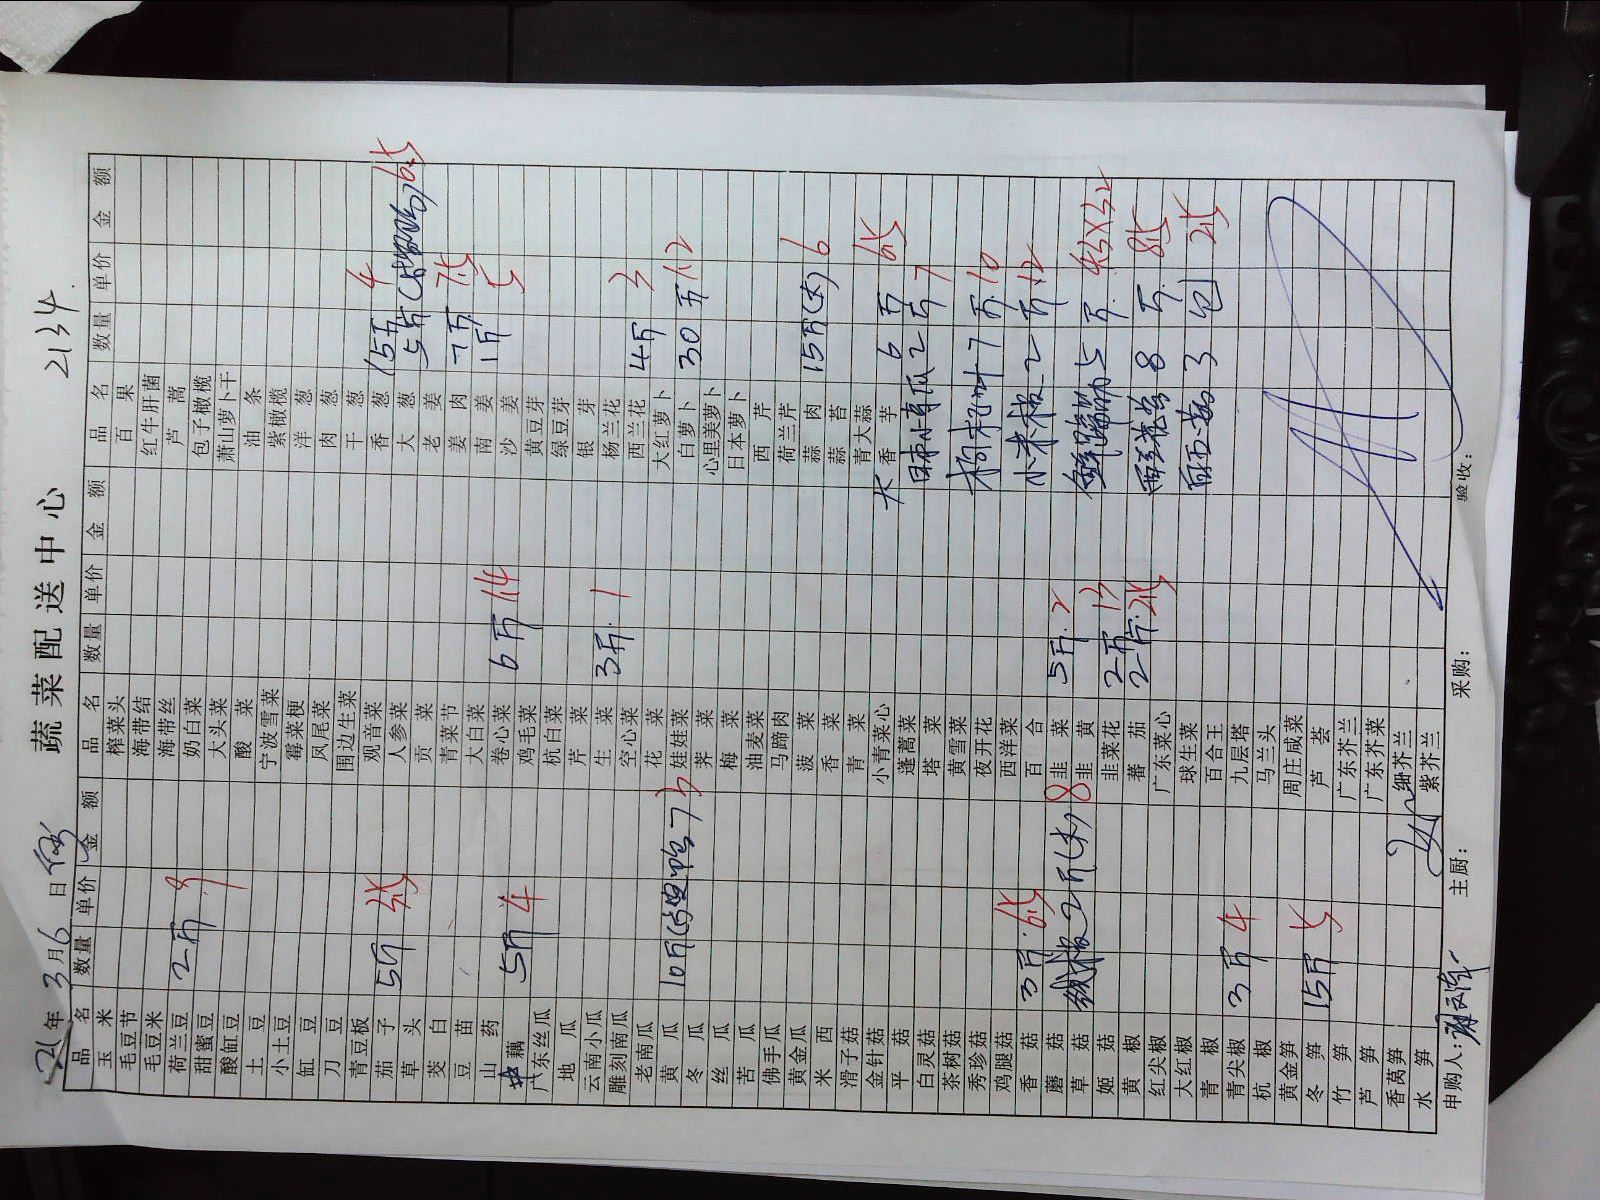 蔬菜配送中心
2134.
21年3月6日
品名 数量 单价 金额 品名 数量 单价 金额 品名 数量 单价 金额
玉米 榨菜头 百果
毛豆节 海带结 红牛肝菌
毛豆米 海带丝 芦蒿
荷兰豆 2斤 9 奶白菜 包子橄榄
甜蜜豆 大头菜 萧山萝卜干
酸缸豆 酸菜 油条
土豆 宁波雪菜 紫橄榄
小土豆 霉菜梗 洋葱
缸豆 凤尾菜 肉葱
刀豆 围边生菜 干葱
青豆板 观音菜 香葱 15斤 4
茄子 5斤 人参菜 大葱 5斤
草头 贡菜 老姜 7斤
茭白 青菜节 姜肉 1斤
豆苗 大白菜 南姜
山药 卷心菜 6斤 沙姜
藕 5斤 4 鸡毛菜 黄豆芽
广东丝瓜 杭白菜 绿豆芽
地瓜 芹菜 银芽
云南小瓜 生菜 3斤 1 杨兰花
雕刻南瓜 空心菜 西兰花 4斤 3
老南瓜 花菜 大红萝卜
黄瓜 10斤 娃娃菜 白萝卜 30斤 1.2
冬瓜 荠菜 心里美萝卜
丝瓜 梅菜 日本萝卜
苦瓜 油麦菜 西芹
佛手瓜 马蹄肉 荷兰芹
黄金瓜 菠菜 蒜肉 15斤(大) 6
米西 香菜 蒜苔
滑子菇 青菜 青大蒜
金针菇 小青菜心 大香芋 6斤
平菇 蓬蒿菜 日本小南瓜 2斤 7
白灵菇 塔菜
茶树菇 黄雪菜 7斤 10
秀珍菇 夜开花
鸡腿菇 西洋菜 小米椒 2斤 12
香菇 3斤 百合
蘑菇 韭菜 5斤 2
草菇 线椒 2斤 8 韭黄
姬菇 韭菜花 2斤
黄椒 蕃茄 2斤 8斤
红尖椒 广东菜心
大红椒 球生菜 3包
青椒 百合王
青尖椒 3斤 4 九层塔
杭椒 马兰头
黄金笋 周庄咸菜
冬笋 15斤 芦荟
竹笋 广东芥兰
芦笋 广东芥菜
香莴笋 细芥兰
水笋 紫芥兰
申购人: 主厨: 采购: 验收: